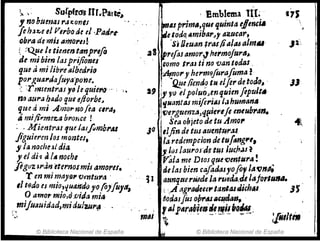 Suſpiros III. Parte,
y no buenas razones
ſe haze el Verbo de el Padre
obra de mis amores!
Que le tienen tan preſo
de mi bien las priſiones
que á mi libre albedrio
por guarda ſuya pone.
Y mientras yo le quiero
no aura hado que eſtorbe,
que á mi Amor no ſea cera,
à mi firmeza bronce!
Mientras que las ſombras
ſiguieren los montes,
y la noche al dia
y el dia à la noche
ſeran eternos mis amores.
Y en mi mayor ventura
el todo es mio, quando yo ſoy ſuya,
O amor mio, ò vida mia
mi ſuauidad, mi dulzura
mas
Emblema III. 175
mas prima, que quinta eſſencia
de todo, ambar, y azucar,
Si lleuan tras ſi al as almas
preſas amor, y hermoſura,
como tras ti no van todas
Amor y hermoſura ſuma?
Que ſiendo tu el ſer de todo,
y yo el poluo, en quien ſepulta
quantas miſerias la humana
verguenza, quiere ſe encubran,
Sea objeto de tu Amor
el fin de tus auenturas
la redempcion de tu ſangre,
y los lauros de tus luchas?
Vala me Dios que ventura!
de las bien caſadas yo ſoy la vna;
aunque ruede la rueda de la fortuna.
A agradecer tantas dichas
todas ſus obras acudan,
y al parabien de mis bodas
ſuſten
© Biblioteca Nacional de España
© Biblioteca Nacional de España